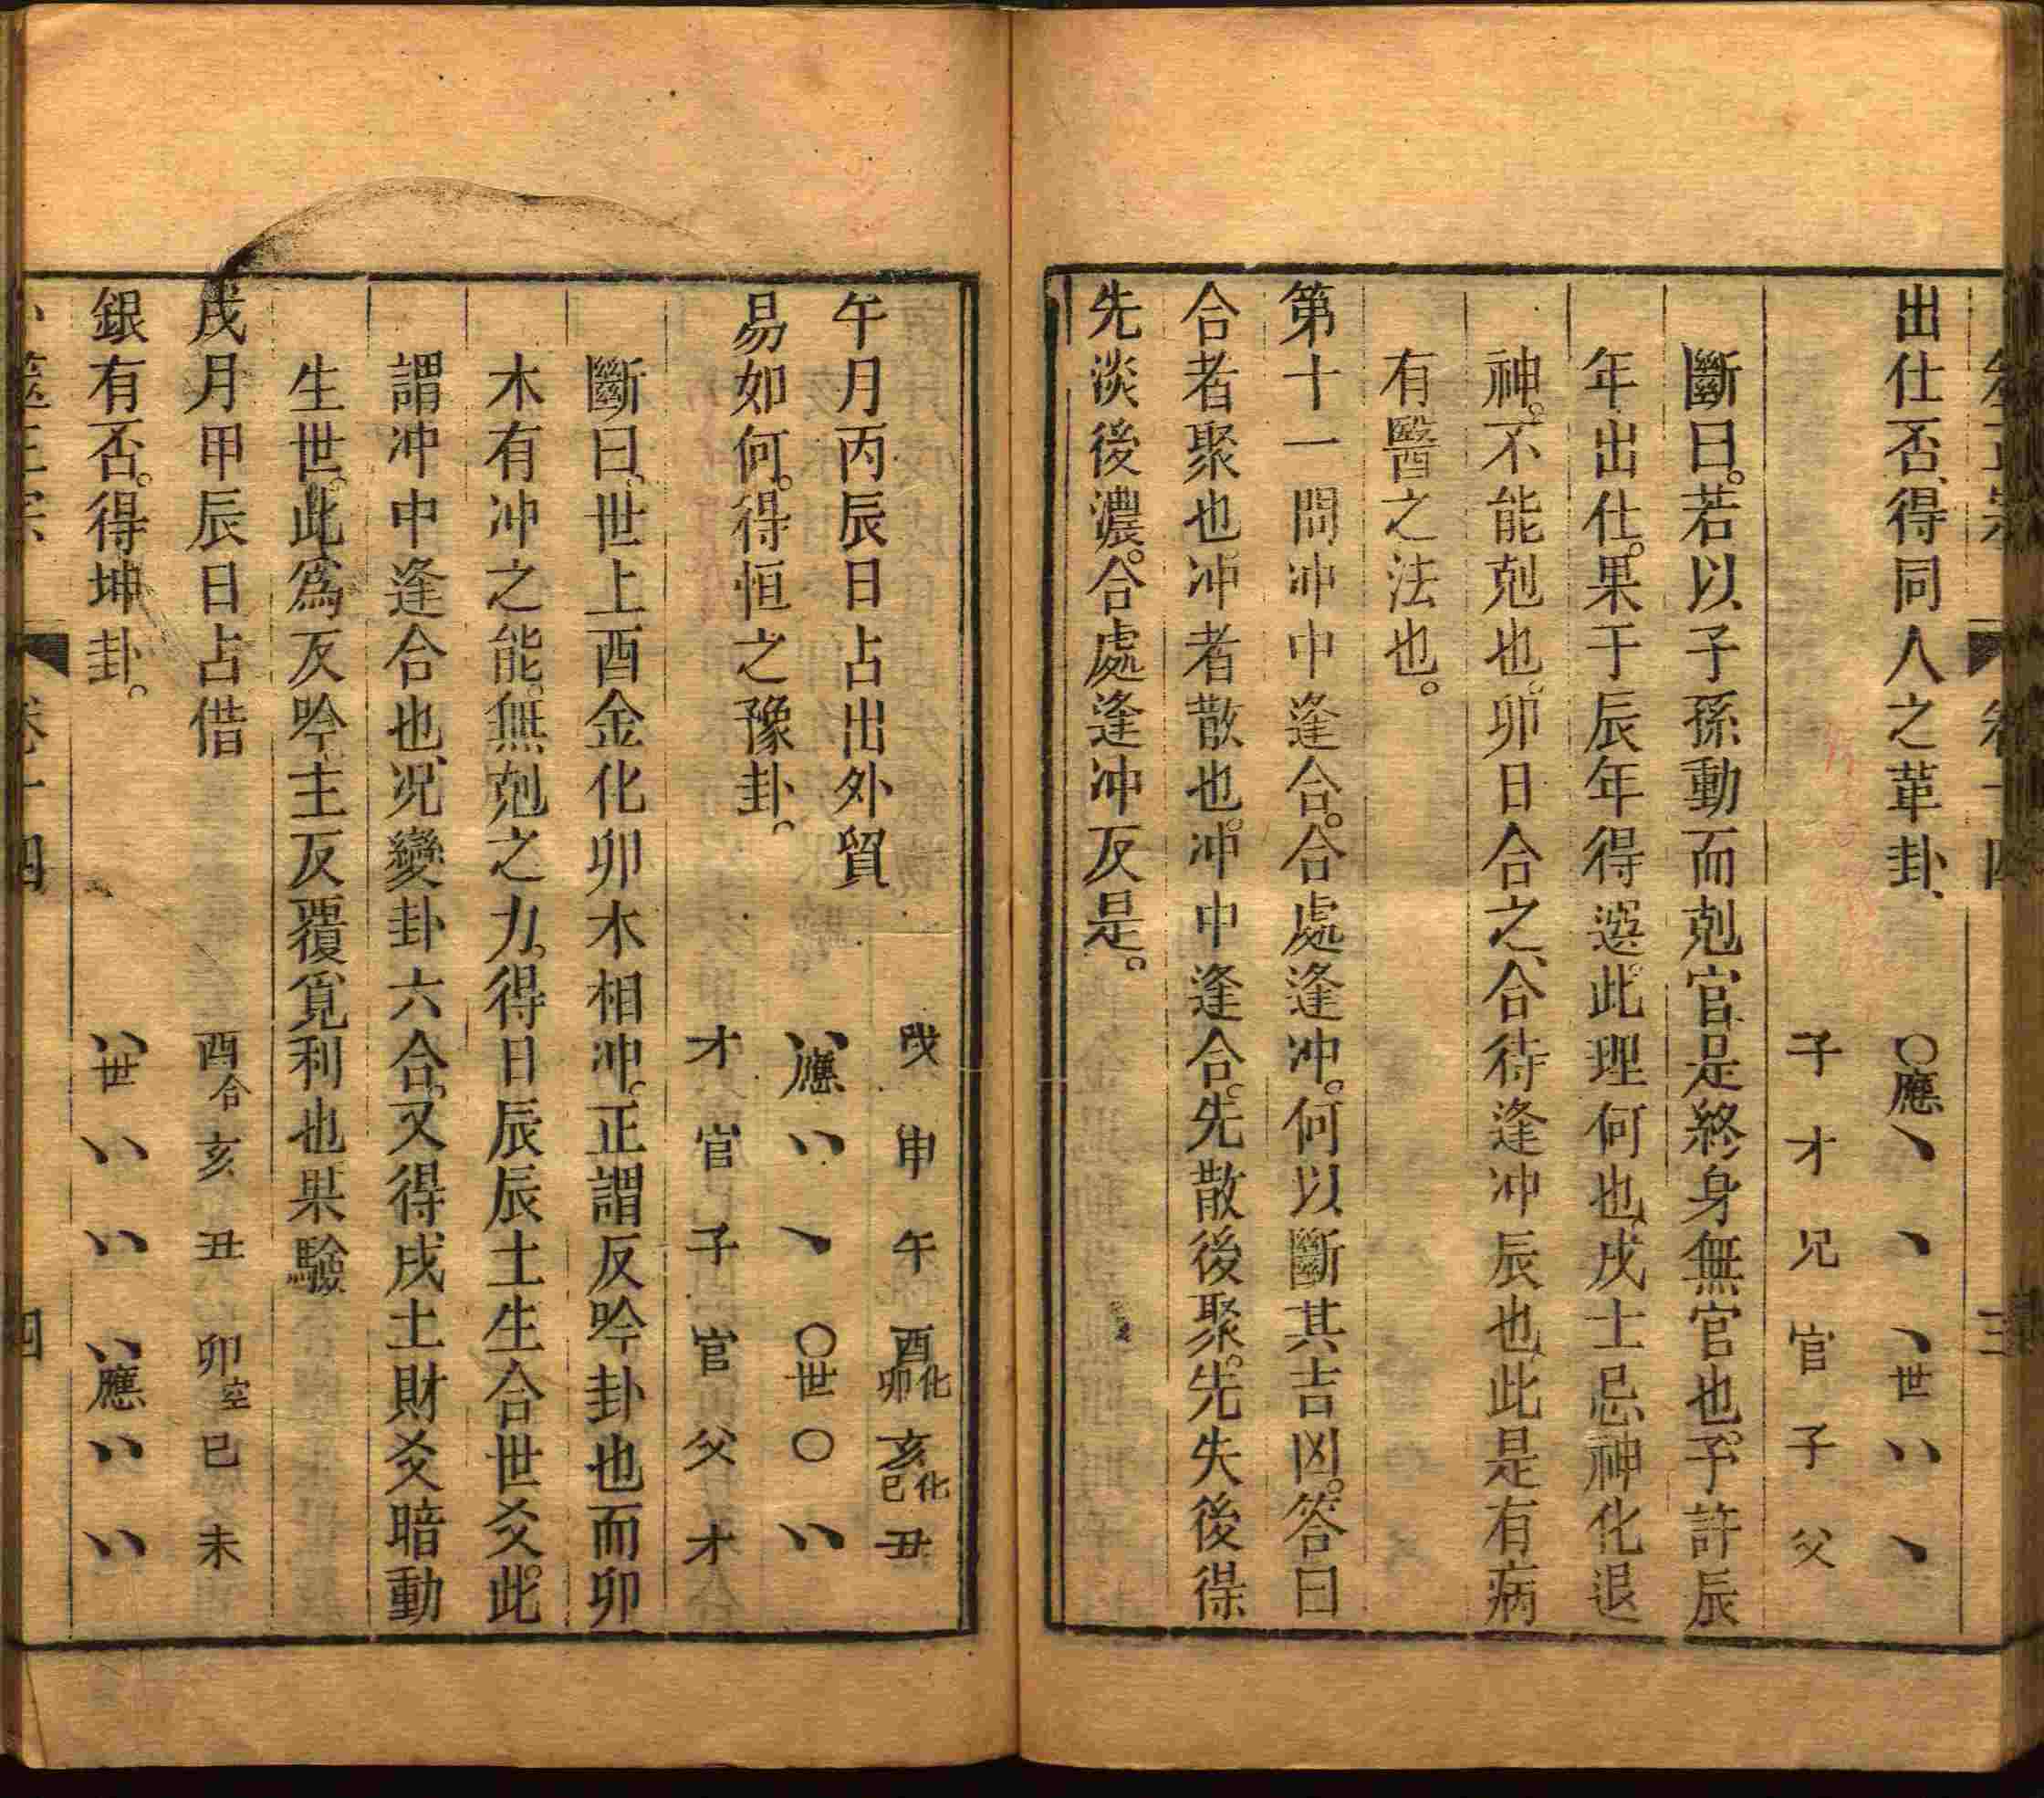 卜筮正宗 卷十四 三
出仕否、得同人之革卦、 〇應 、 、 、世 〃 、
子 才 兄 官 子 父
斷曰。若以子孫動而剋官是終身無官也。予許辰
年出仕。果于辰年得選。此理何也、戌土忌神化退
神。不能剋也。卯日合之、合待逢冲辰也、此是有病
有醫之法也。
第十一問冲中逢合。合處逢冲。何以斷其吉凶。答曰
合者聚也冲者散也。冲中逢合。先散後聚。先失後得
先淡後濃。合處逢冲反是。
戌 申 午 酉化卯 亥化巳 丑
午月丙辰日占出外貿 〃應 〃 、 〇世 〇 〃
易如何。得恒之豫卦。
才 官 子 官 父 才
斷曰、世上酉金化卯木相冲。正謂反吟卦也而卯
木有冲之能。無剋之力。得日辰辰土生合世爻。此
謂冲中逢合也、况變卦六合。又得戌土財爻暗動
生世。此爲反吟主反覆覔利也果驗
戌月甲辰日占借 酉合 亥 丑 卯空 巳 未
銀有否。得坤卦。 〃世 〃 〃 〃應 〃 〃
卜筮正宗 卷十四 四